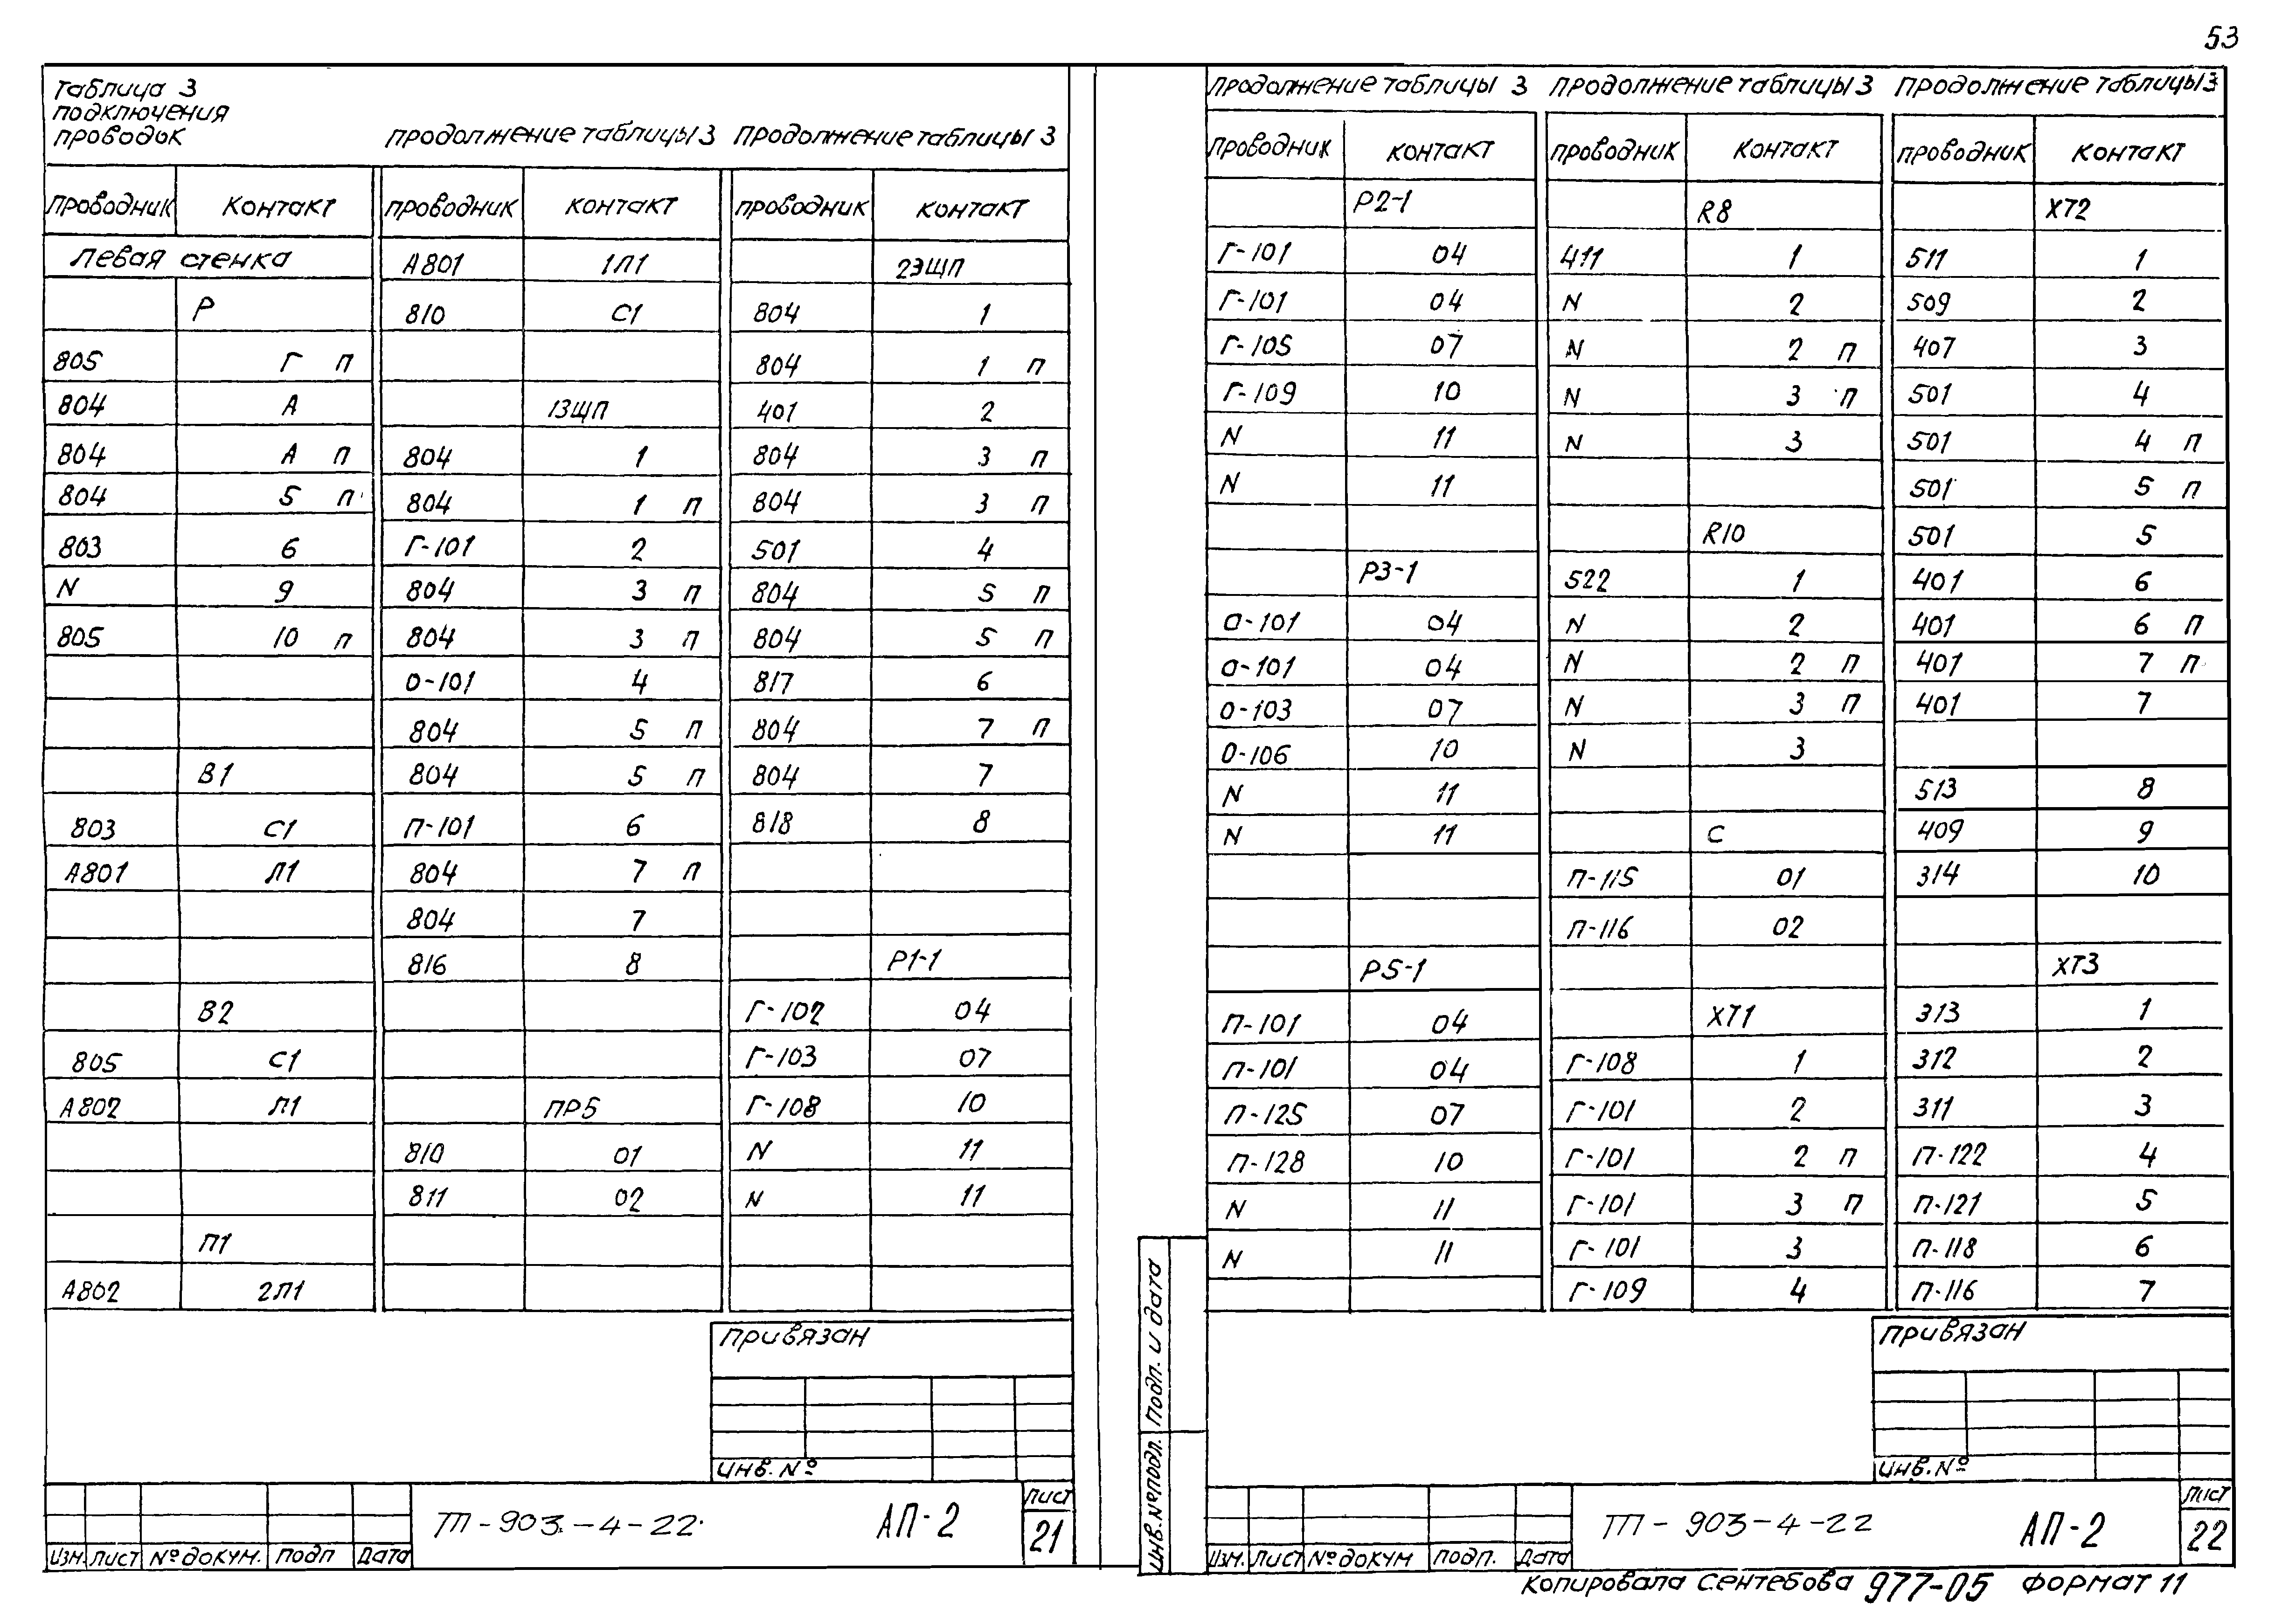 53
Таблица 3
подключения
проводок
продолжение таблицы 3
продолжение таблицы 3
проводник контакт
левая стенка
Р
805 Г п
804 А
804 А п
804 5 п
803 6
N 9
805 10 п
В1
803 С1
А801 Л1
В2
805 С1
А802 Л1
П1
А802 2Л1
проводник контакт
А801 1Л1
810 С1
13ЩП
804 1
804 1 п
Г-101 2
804 3 п
804 3 п
О-101 4
804 5 п
804 5 п
П-101 6
804 7 п
804 7
816 8
ПР5
810 01
811 02
проводник контакт
2ЭЩП
804 1
804 1 п
401 2
804 3 п
804 3 п
501 4
804 5 п
804 5 п
817 6
804 7 п
804 7
818 8
Р1-1
Г-102 04
Г-103 07
Г-108 10
N 11
N 11
привязан
инв. №
изм. лист № докум. подп дата
ТП-903-4-22
АП-2
лист
21
продолжение таблицы 3
проводник контакт
Р2-1
Г-101 04
Г-101 04
Г-105 07
Г-109 10
N 11
N 11
Р3-1
О-101 04
О-101 04
О-103 07
О-106 10
N 11
N 11
Р5-1
П-101 04
П-101 04
П-125 07
П-128 10
N 11
N 11
продолжение таблицы 3
проводник контакт
R8
411 1
N 2
N 2 п
N 3 п
N 3
R10
522 1
N 2
N 2 п
N 3 п
N 3
С
П-115 01
П-116 02
ХТ1
Г-108 1
Г-101 2
Г-101 2 п
Г-101 3 п
Г-101 3
Г-109 4
продолжение таблицы 3
проводник контакт
ХТ2
511 1
509 2
407 3
501 4
501 4 п
501 5 п
501 5
401 6
401 6 п
401 7 п
401 7
513 8
409 9
314 10
ХТ3
313 1
312 2
311 3
П-122 4
П-121 5
П-118 6
П-116 7
инв. № подл. подп. и дата
привязан
инв. №
изм. лист № докум подп. дата
ТП-903-4-22
АП-2
лист
22
Копировала Сентебова 977-05 формат 11